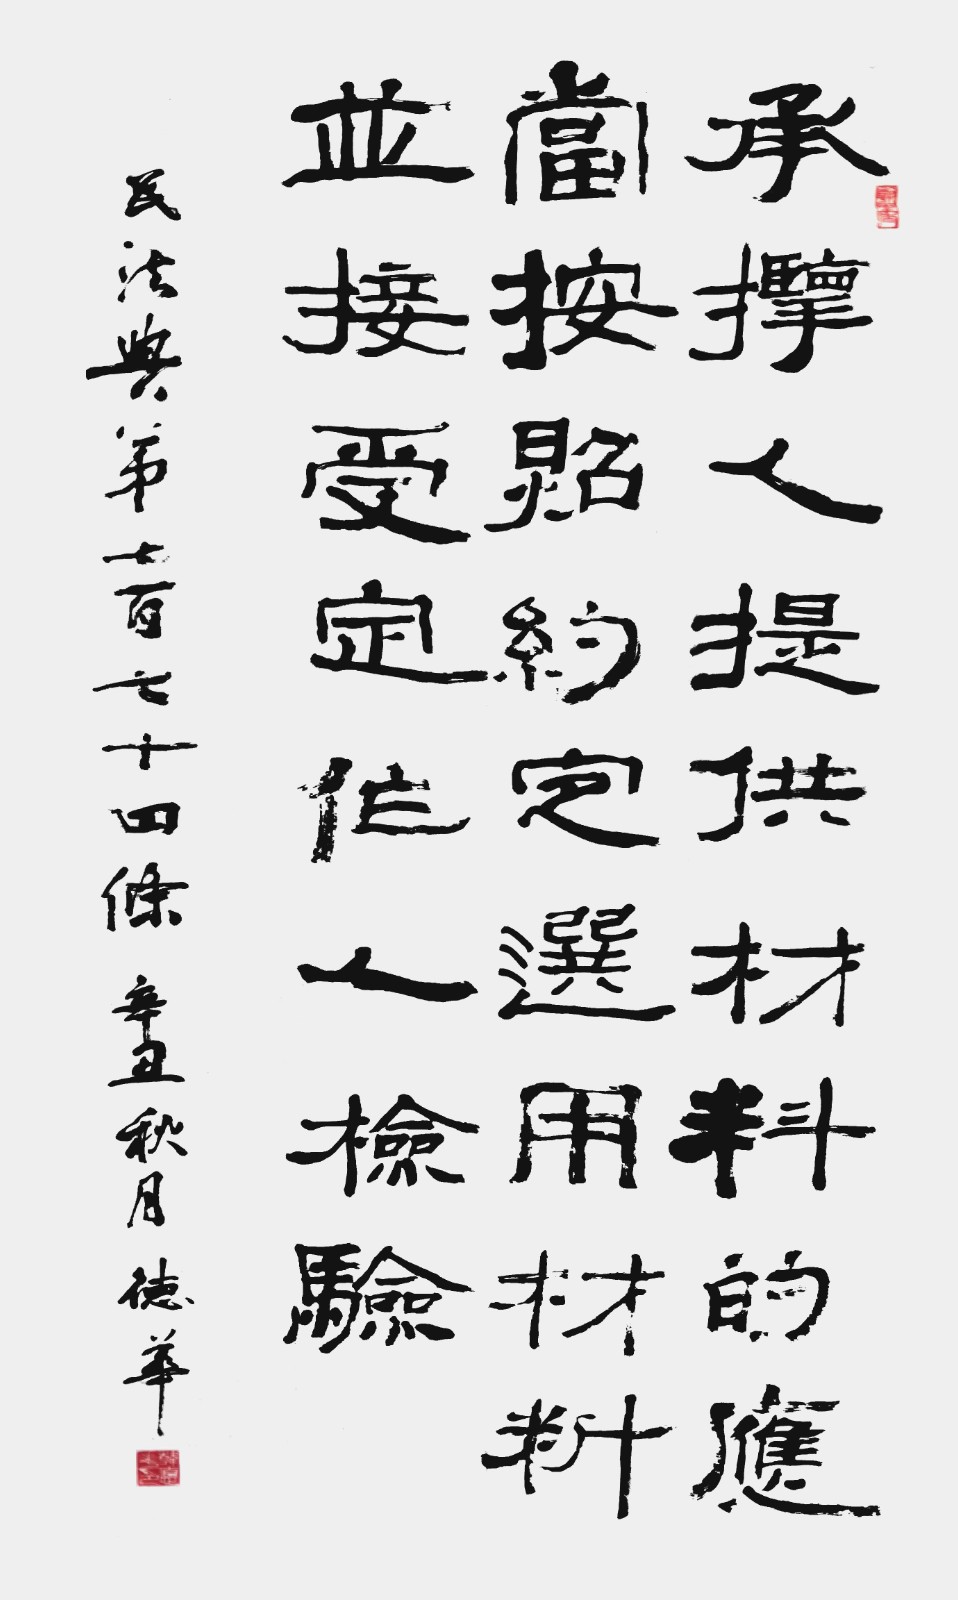 承攬人提供材料的應
當按照約定選用材料
並接受定作人檢驗
民法典第七百七十四條 辛丑秋月 德華